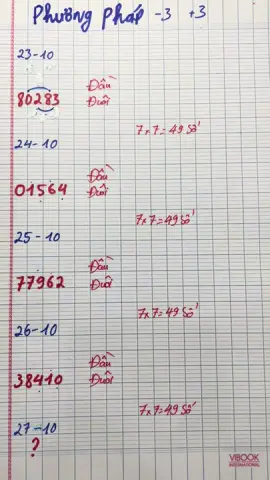 Phương Pháp -3 +3
23-10
Đầu
80283 Đuôi
7x7=49 số
24-10
Đầu
01564 Đuôi
7x7=49 số
25-10
Đầu
77962 Đuôi
7x7=49 số
26-10
Đầu
38410 Đuôi
7x7=49 số
27-10
?
VBOOK
INTERNATIONAL